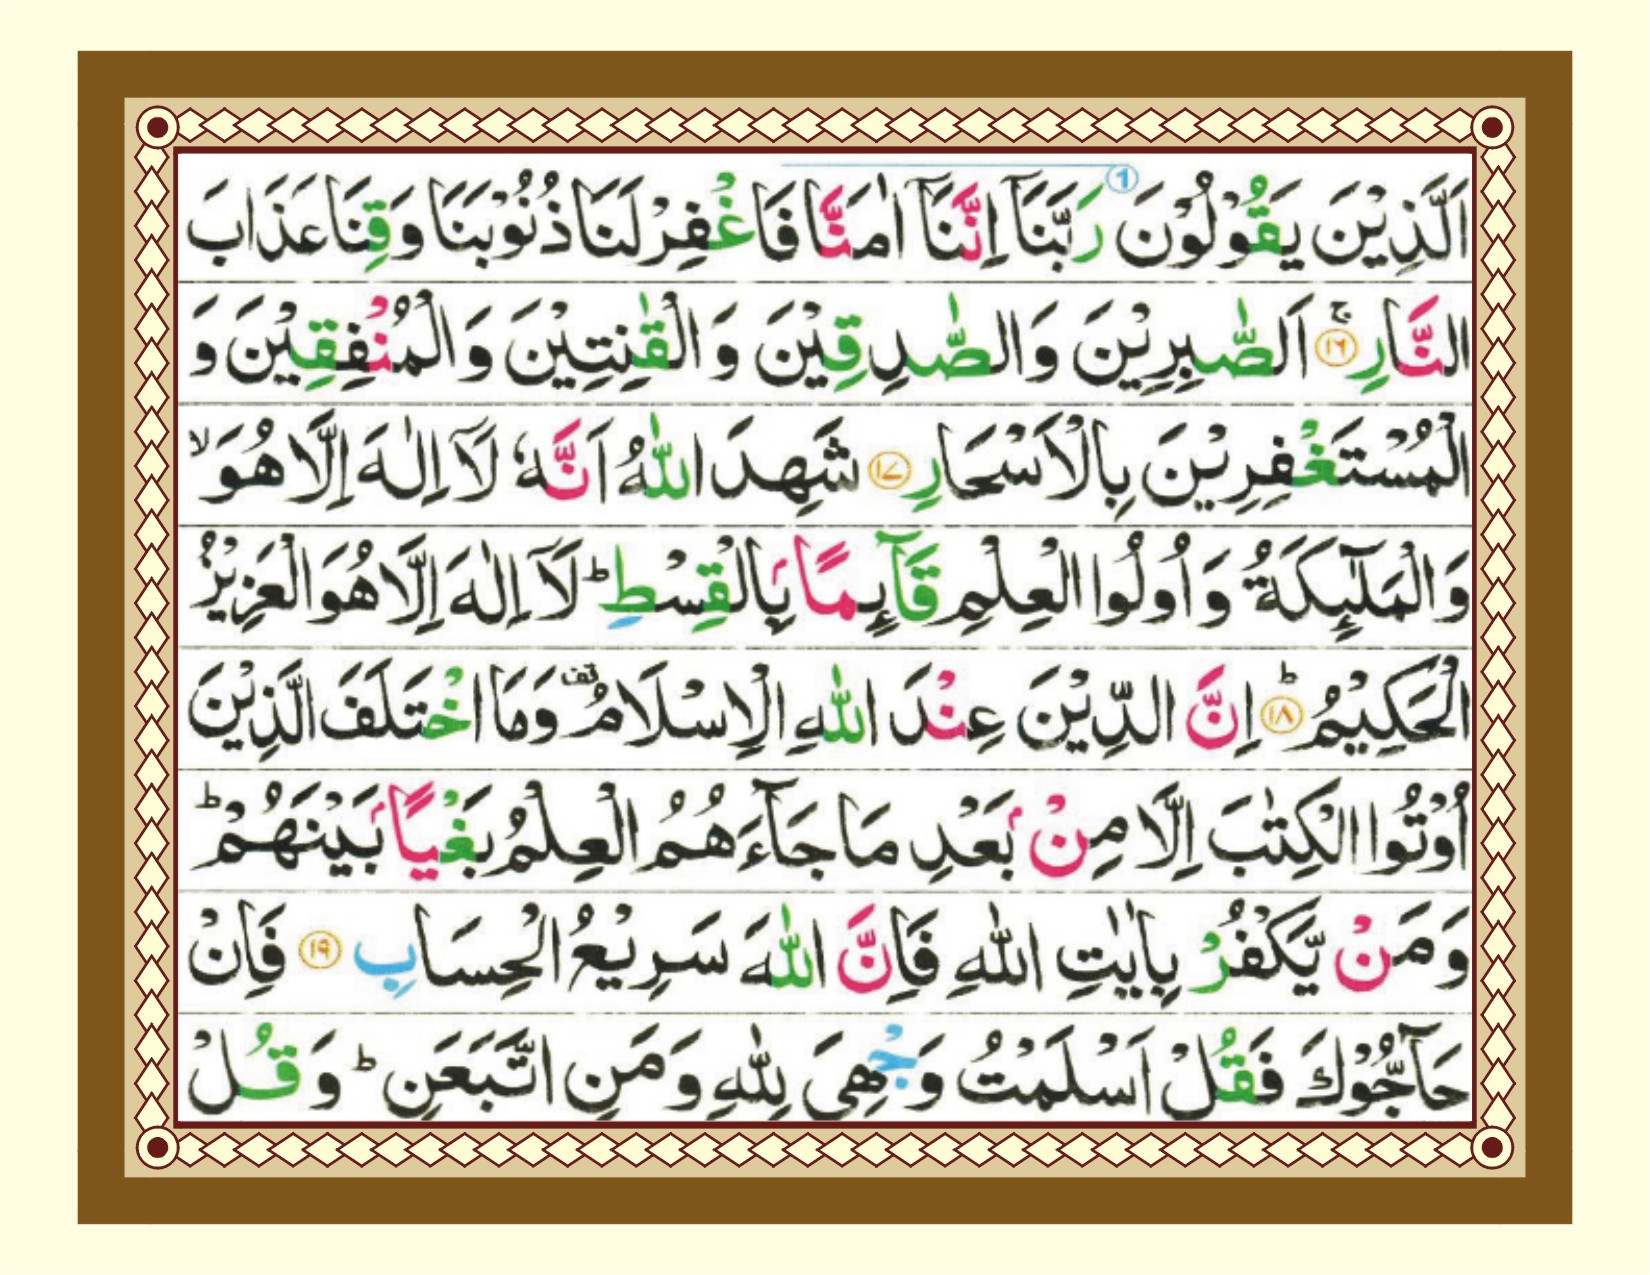 اَلَّذِيْنَ يَقُوْلُوْنَ رَبَّنَاۤ اِنَّنَاۤ اٰمَنَّا فَاغْفِرْلَنَا ذُنُوْبَنَا وَقِنَا عَذَابَ
النَّارِۚ ۝۱۶ اَلصّٰبِرِيْنَ وَالصّٰدِقِيْنَ وَالْقٰنِتِيْنَ وَالْمُنْفِقِيْنَ وَ
الْمُسْتَغْفِرِيْنَ بِالْاَسْحَارِ ۝۱۷ شَهِدَ اللّٰهُ اَنَّهٗ لَاۤ اِلٰهَ اِلَّا هُوَۙ
وَالْمَلٰٓئِكَةُ وَاُولُوا الْعِلْمِ قَآئِمًۢا بِالْقِسْطِؕ لَاۤ اِلٰهَ اِلَّا هُوَ الْعَزِيْزُ
الْحَكِيْمُؕ ۝۱۸ اِنَّ الدِّيْنَ عِنْدَ اللّٰهِ الْاِسْلَامُ قف وَمَا اخْتَلَفَ الَّذِيْنَ
اُوْتُوا الْكِتٰبَ اِلَّا مِنْۢ بَعْدِ مَا جَآءَهُمُ الْعِلْمُ بَغْيًۢا بَيْنَهُمْؕ
وَمَنْ يَّكْفُرْ بِاٰيٰتِ اللّٰهِ فَاِنَّ اللّٰهَ سَرِيْعُ الْحِسَابِ ۝۱۹ فَاِنْ
حَآجُّوْكَ فَقُلْ اَسْلَمْتُ وَجْهِيَ لِلّٰهِ وَمَنِ اتَّبَعَنِؕ وَقُلْ